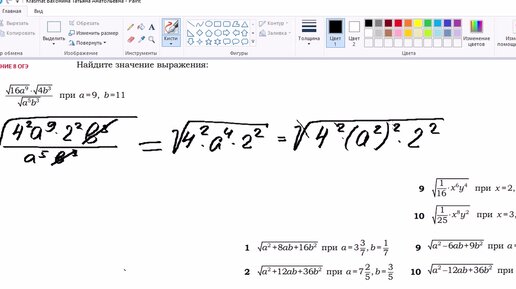 Главная
Выделить
Изменить размер
Повернуть
Изображение
Инструменты
Кисти
Контур
Заливка
Фигуры
Толщина
Цвет 1
Цвет 2
Цвета
Изменение цветов
НИЕ 8 ОГЭ
Найдите значение выражения:
√(16a⁹) · √(4b³) / √(a⁵b³) при a = 9, b = 11
√(4²a⁹·2²b³ / a⁵b³) = √(4²·a⁴·2²) = √(4²·(a²)²·2²)
9 √(1/16 · x⁶y⁴) при x = 2,
10 √(1/25 · x⁸y²) при x = 3,
1 √(a²+8ab+16b²) при a = 3 3/7, b = 1/7
9 √(a²−6ab+9b²) при a =
2 √(a²+12ab+36b²) при a = 7 2/5, b = 3/5
10 √(a²−12ab+36b²) при